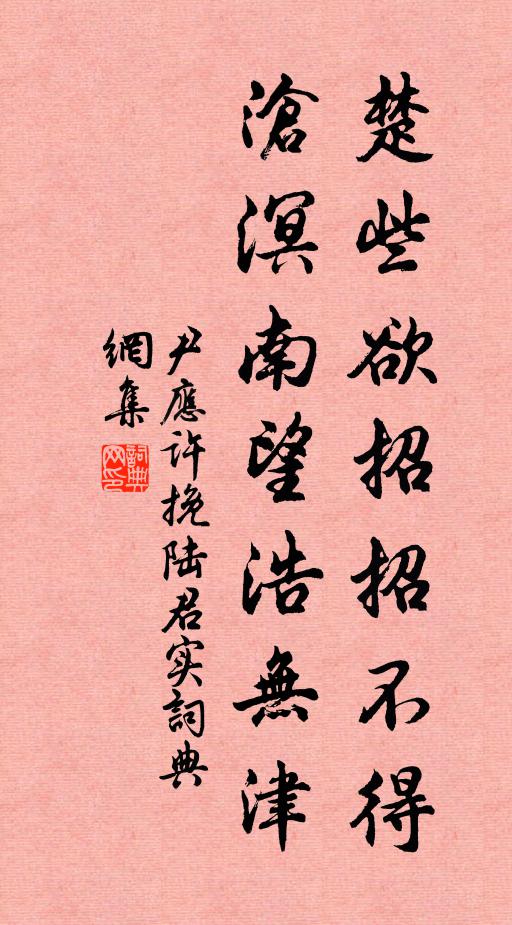 楚些欲招招不得
滄溟南望浩無津
尹應许挽陆君实詞典
網集
詞典
网印